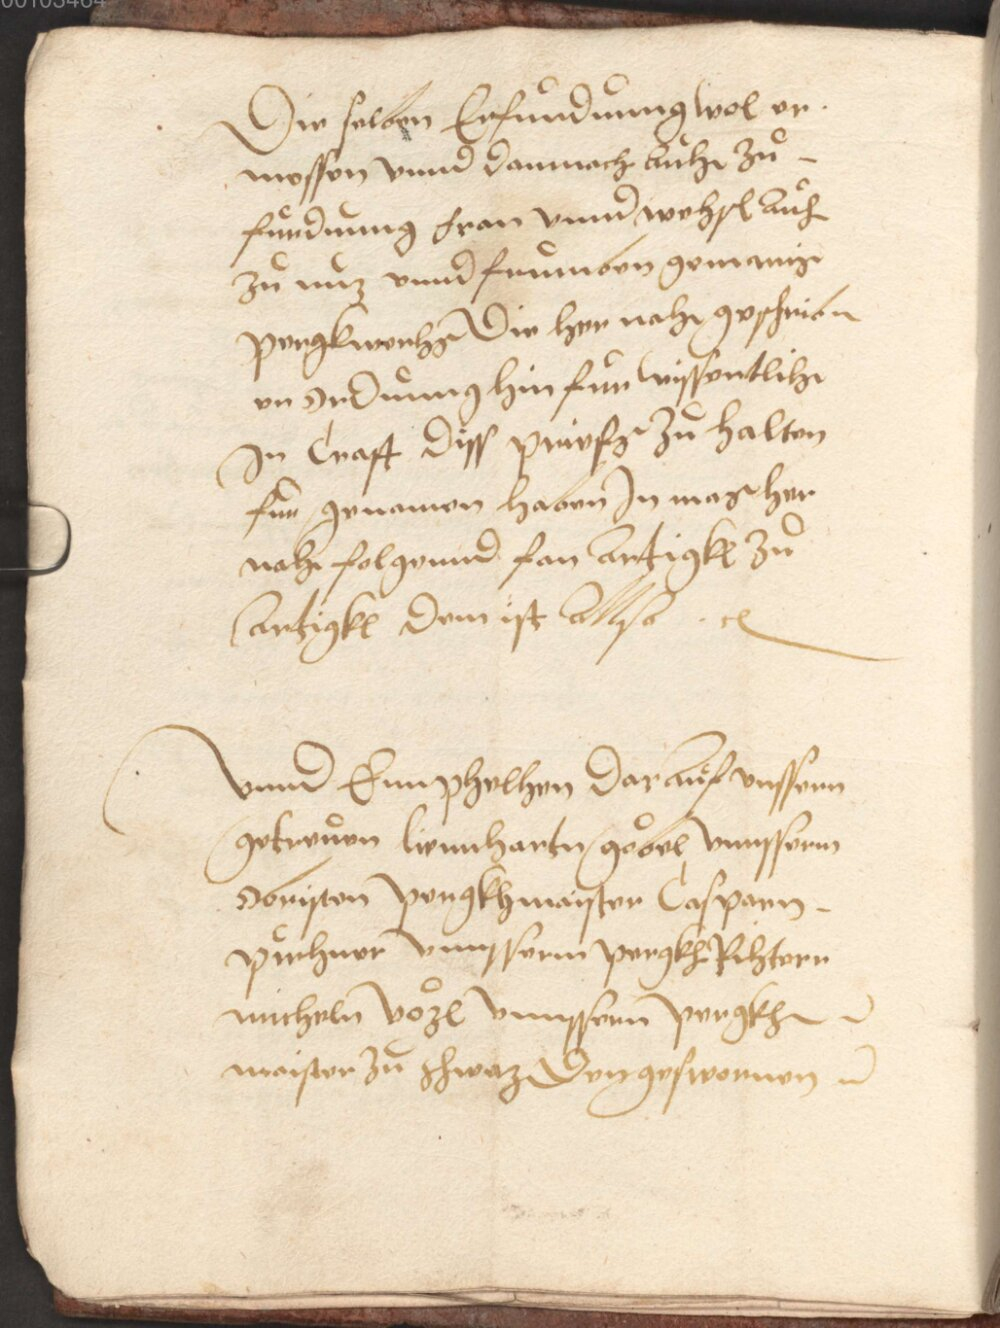 Die selben Erfundnung wol er
messen vnnd dannach auch zu
fürdrung fron vnnd wechsl auch
zu nuz vnnd frumben gemainz
Pergkwerchs Die her nach geschriben
en Ordnung hin für wissentlich
In Craft diss prieffs zu halten
für genomen haben In mas her
nach folgennd fan Artigkl zu
Artigkl dem ist Allso
Vnnd Emphelhen darauf vnssern
getreuen lienharten gobel vnnsserm
obristen pergkhmaister Casparn
pirchner vnnsserm pergkh Richtern
micheln vözl vnnssern pergkh
maister zu Schwaz Den geswornen